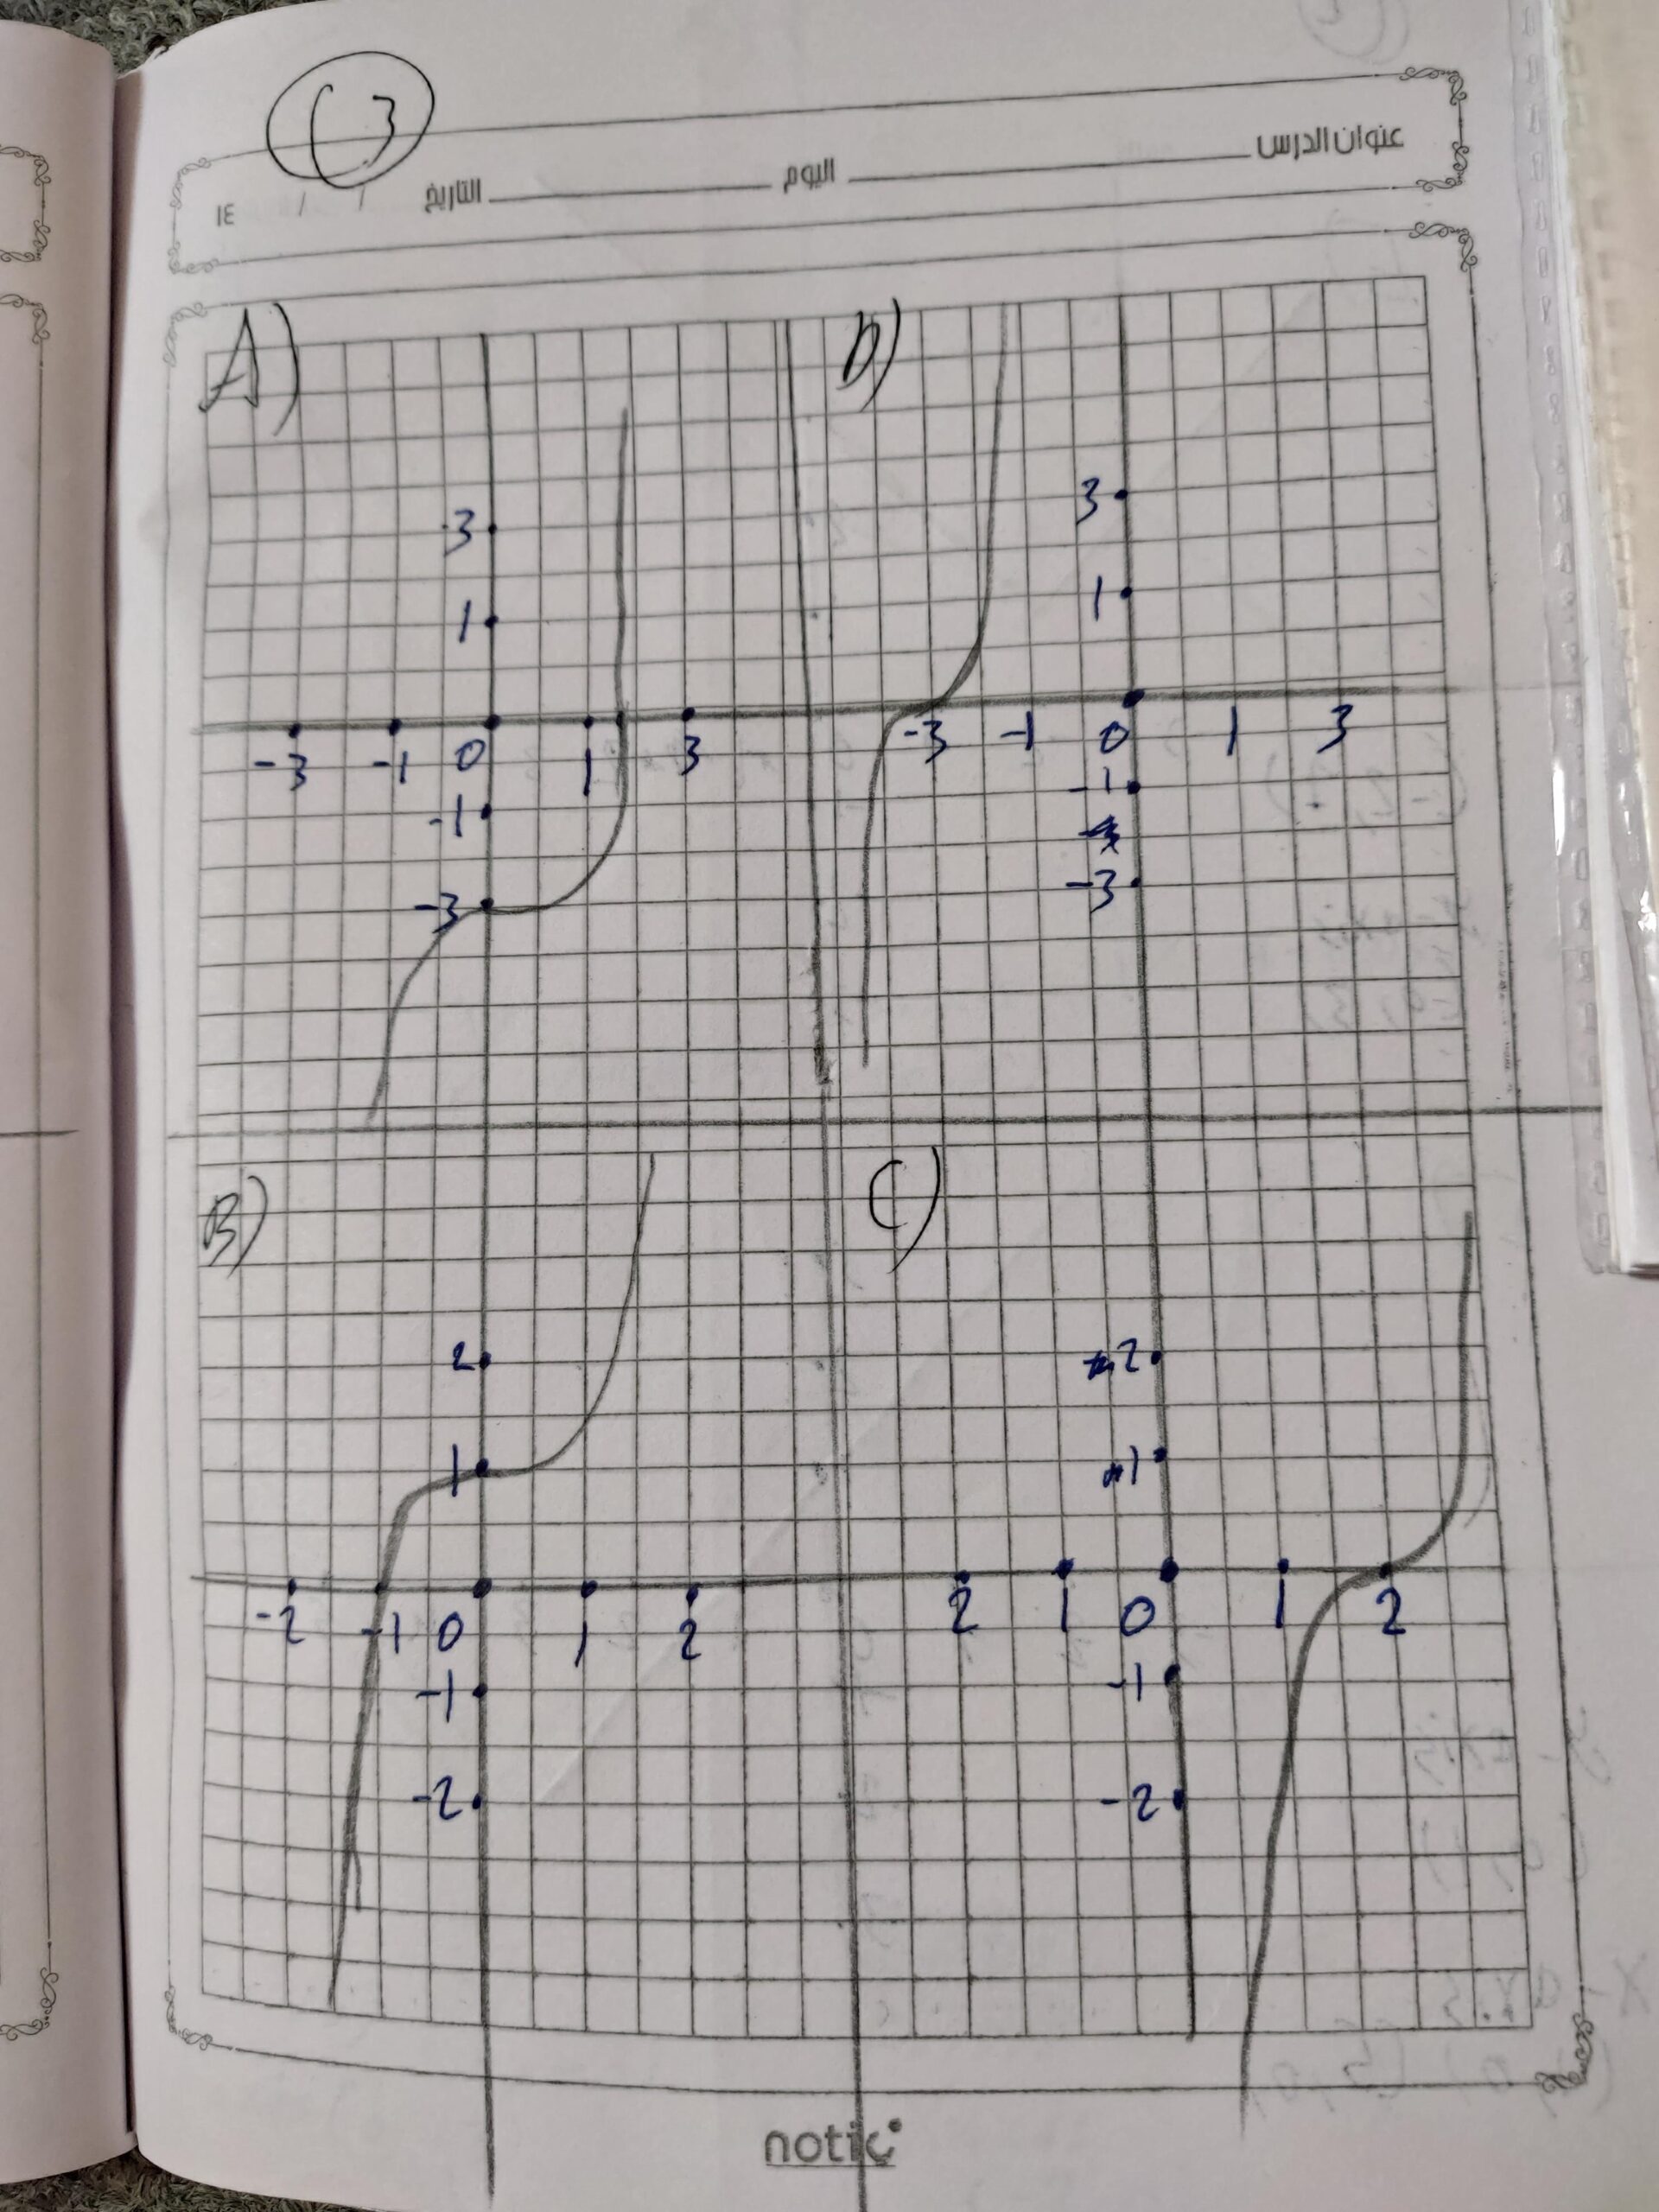 (3
عنوان الدرس اليوم التاريخ / / ١٤
A)
3
1
-3 -1 0 1 3
-1
-3
D)
3
1
-3 -1 0 1 3
-1
-3
B)
2
1
-2 -1 0 1 2
-1
-2
C)
2
1
2 1 0 1 2
-1
-2
notic